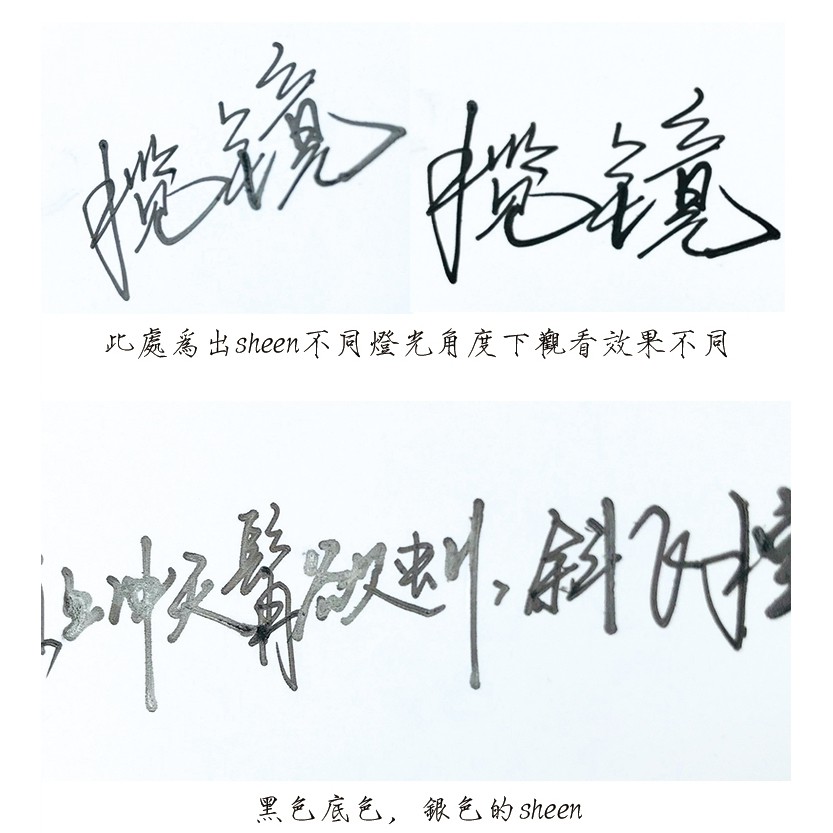 揽镜 揽镜
此處爲出sheen不同燈光角度下觀看效果不同
冲天髯欲刺，斜飞
黑色底色，銀色的sheen